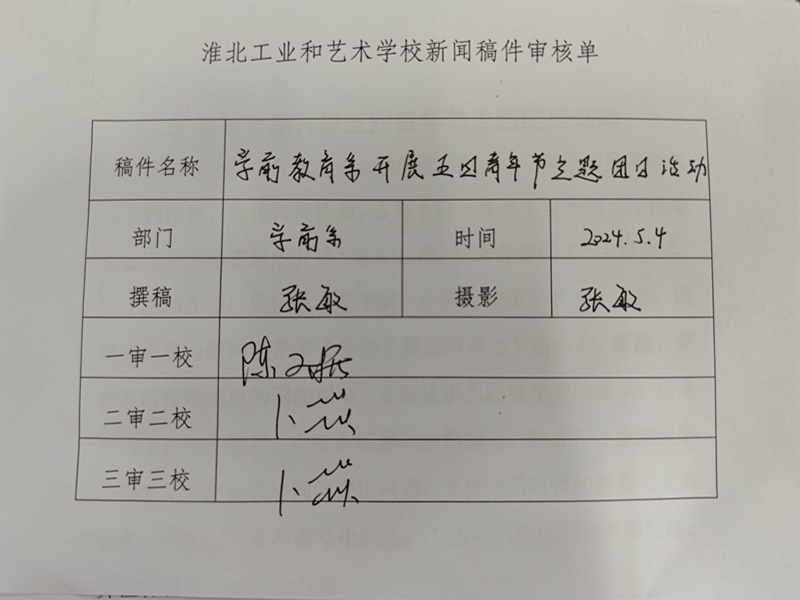 淮北工业和艺术学校新闻稿件审核单
稿件名称 学前教育系开展五四青年节主题团日活动
部门 学前系 时间 2024.5.4
撰稿 张敏 摄影 张敏
一审一校 陈
二审二校
三审三校